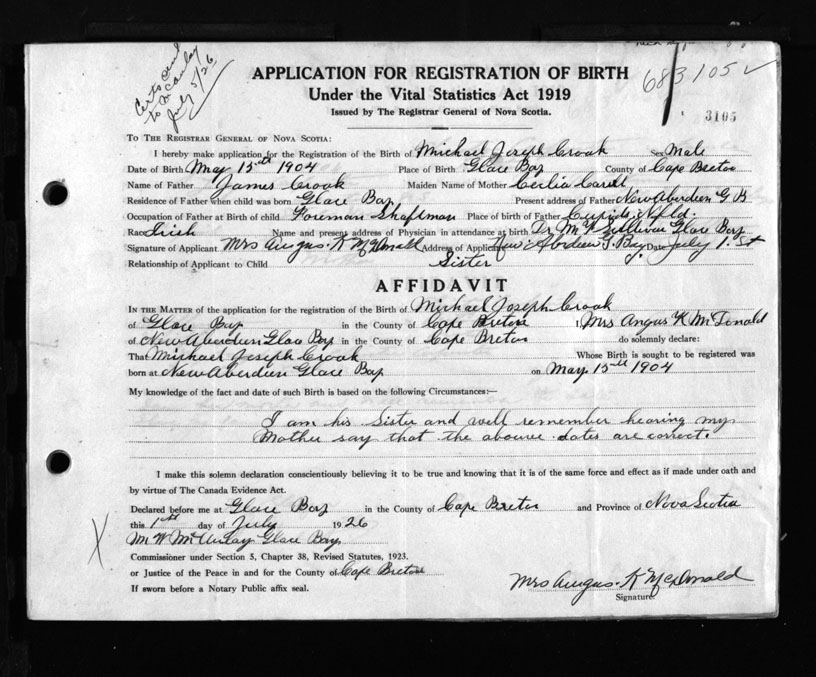 Certs send
to McAuley
July 5/26
683105
3105
APPLICATION FOR REGISTRATION OF BIRTH
Under the Vital Statistics Act 1919
Issued by The Registrar General of Nova Scotia.
TO THE REGISTRAR GENERAL OF NOVA SCOTIA:
I hereby make application for the Registration of the Birth of Michael Joseph Croak Sex Male
Date of Birth May 15th 1904 Place of Birth Glace Bay County of Cape Breton
Name of Father James Croak Maiden Name of Mother Cecilia
Residence of Father when child was born Glace Bay Present address of Father New Aberdeen G B
Occupation of Father at Birth of child Foreman Shaftman Place of birth of Father Cupids Nfld.
Race Irish Name and present address of Physician in attendance at birth Dr M Sullivan Glace Bay
Signature of Applicant Mrs Angus K McDonald Address of Applicant New Aberdeen G. Bay Date July 1st
Relationship of Applicant to Child Sister
AFFIDAVIT
IN THE MATTER of the application for the registration of the Birth of Michael Joseph Croak
of Glace Bay in the County of Cape Breton I, Mrs Angus K McDonald
of New Aberdeen Glace Bay in the County of Cape Breton do solemnly declare:
That Michael Joseph Croak Whose Birth is sought to be registered was
born at New Aberdeen Glace Bay on May 15th 1904
My knowledge of the fact and date of such Birth is based on the following Circumstances:—
I am his Sister and well remember hearing my
Mother say that the abouve dates are correct.
I make this solemn declaration conscientiously believing it to be true and knowing that it is of the same force and effect as if made under oath and
by virtue of The Canada Evidence Act.
Declared before me at Glace Bay in the County of Cape Breton and Province of Nova Scotia
this 1st day of July 1926
M W McAulay Glace Bay
Commissioner under Section 5, Chapter 38, Revised Statutes, 1923.
or Justice of the Peace in and for the County of Cape Breton
If sworn before a Notary Public affix seal.
Mrs Angus K McDonald
Signature